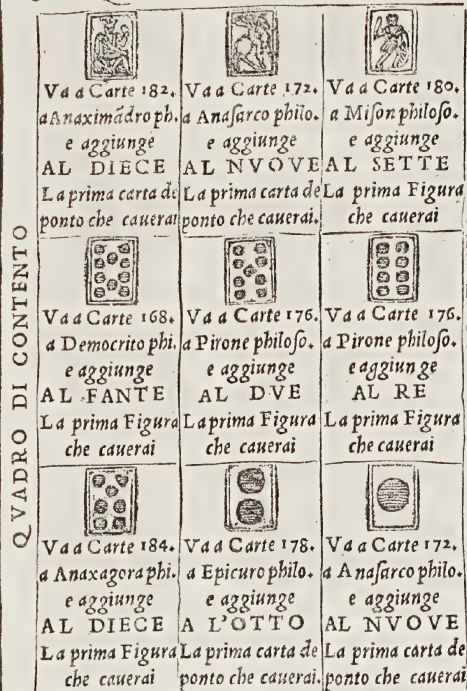 QVADRO DI CONTENTO
Va a Carte 182.
a Anaximãdro ph.
e aggiunge
AL DIECE
La prima carta di
ponto che cauerai
Va a Carte 172.
a Anaſarco philo.
e aggiunge
AL NVOVE
La prima carta de
ponto che cauerai.
Va a Carte 180.
a Miſon philoſo.
e aggiunge
AL SETTE
La prima Figura
che cauerai
Va a Carte 168.
a Democrito phi.
e aggiunge
AL FANTE
La prima Figura
che cauerai
Va a Carte 176.
a Pirone philoſo.
e aggiunge
AL DVE
La prima Figura
che cauerai
Va a Carte 176.
a Pirone philoſo.
e aggiunge
AL RE
La prima Figura
che cauerai
Va a Carte 184.
a Anaxagora phi.
e aggiunge
AL DIECE
La prima Figura
che cauerai
Va a Carte 178.
a Epicuro philo.
e aggiunge
A L'OTTO
La prima carta de
ponto che cauerai.
Va a Carte 172.
a Anaſarco philo.
e aggiunge
AL NVOVE
La prima carta de
ponto che cauerai